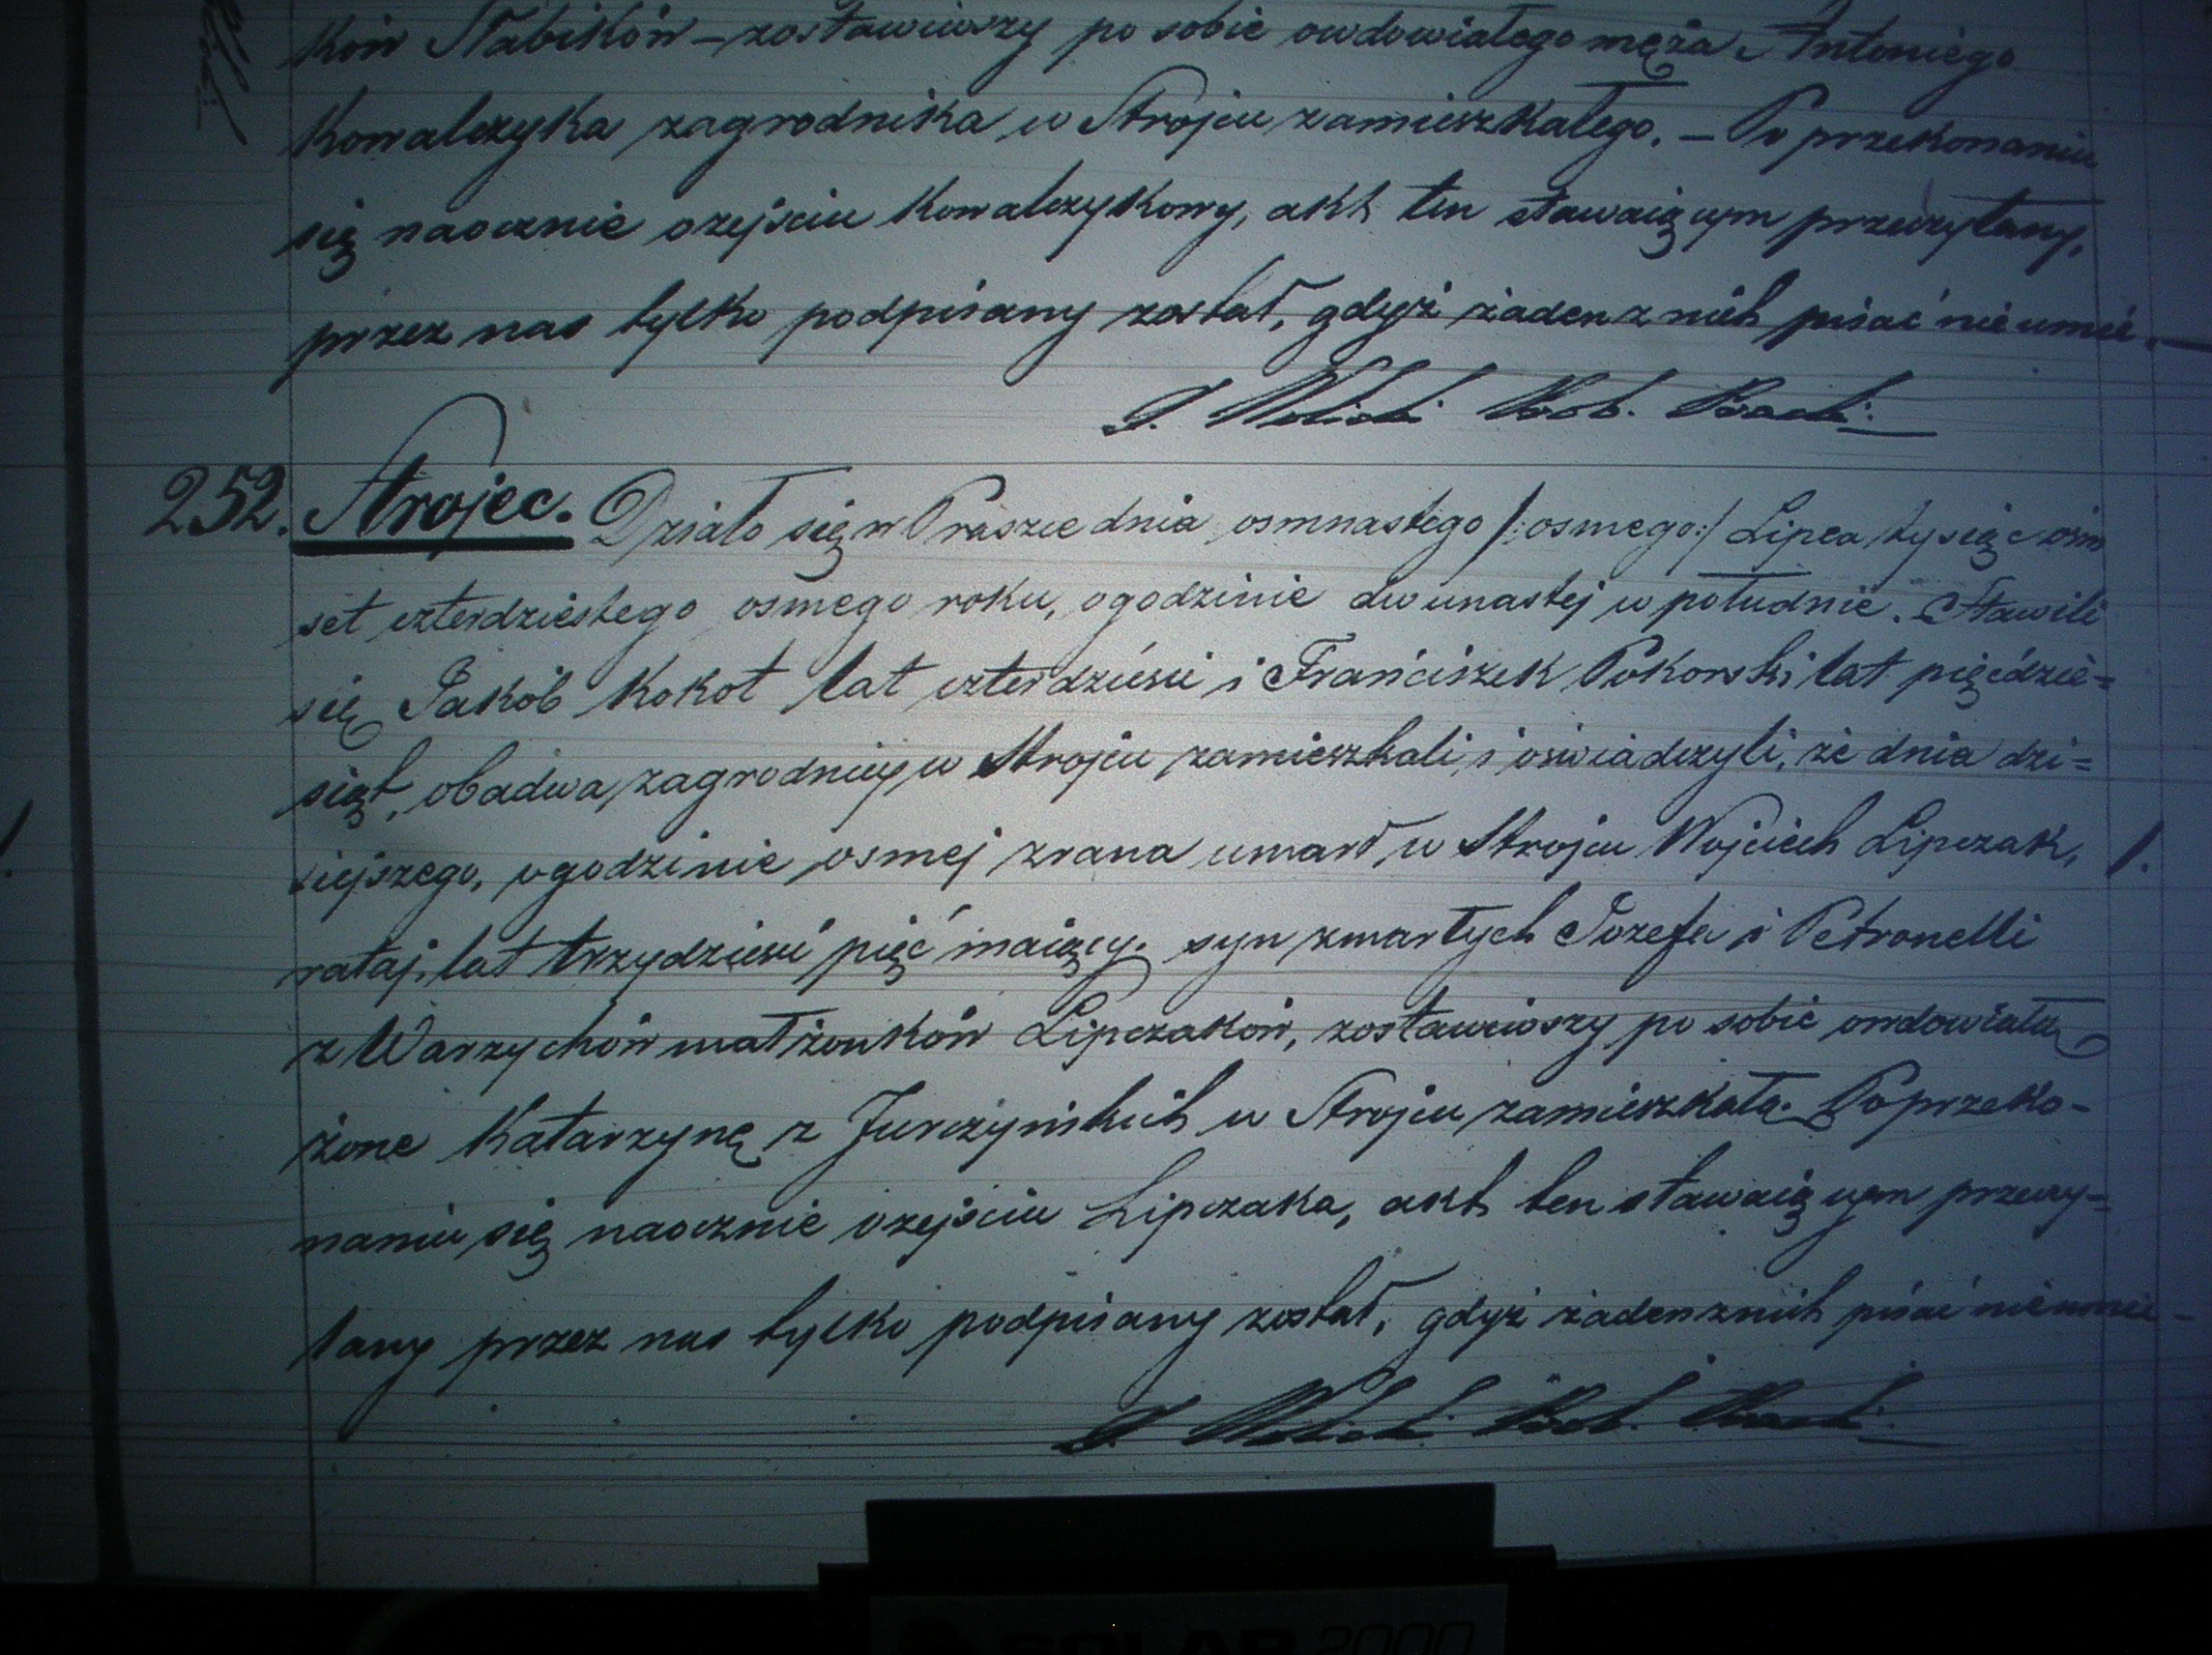 ków Stabików – zostawiwszy po sobie owdowiałego męża Antoniego
Kowalczyka zagrodnika w Strojcu zamieszkałego. – Po przekonaniu
się naocznie o zejściu Kowalczykowy, akt ten stawaiącym przeczytany,
przez nas tylko podpisany został, gdyż żaden z nich pisać nie umie. –
252. Strojec. Działo się w Praszce dnia osmnastego /:osmego:/ Lipca tysiąc ośm
set czterdziestego osmego roku, o godzinie dwunastej w południe. Stawili
się Jakób Kokot lat czterdzieści i Franciszek Pokorski lat pięćdzie=
siąt, obadwa zagrodnicy w Strojcu zamieszkali, i oświadczyli, że dnia dzi=
siejszego, o godzinie osmej zrana umarł w Strojcu Wojciech Lipczak,
rataj, lat trzydzieści pięć maiący, syn zmarłych Jozefa i Petronelli
z Warzychów małżonków Lipczaków, zostawiwszy po sobie owdowiałą
żone Katarzynę z Jurczyńskich w Strojcu zamieszkałą. Po przeko-
naniu się naocznie o zejściu Lipczaka, akt ten stawaiącym przeczy=
tany przez nas tylko podpisany został, gdyż żaden z nich pisać nie umie –
SOLAR 2000